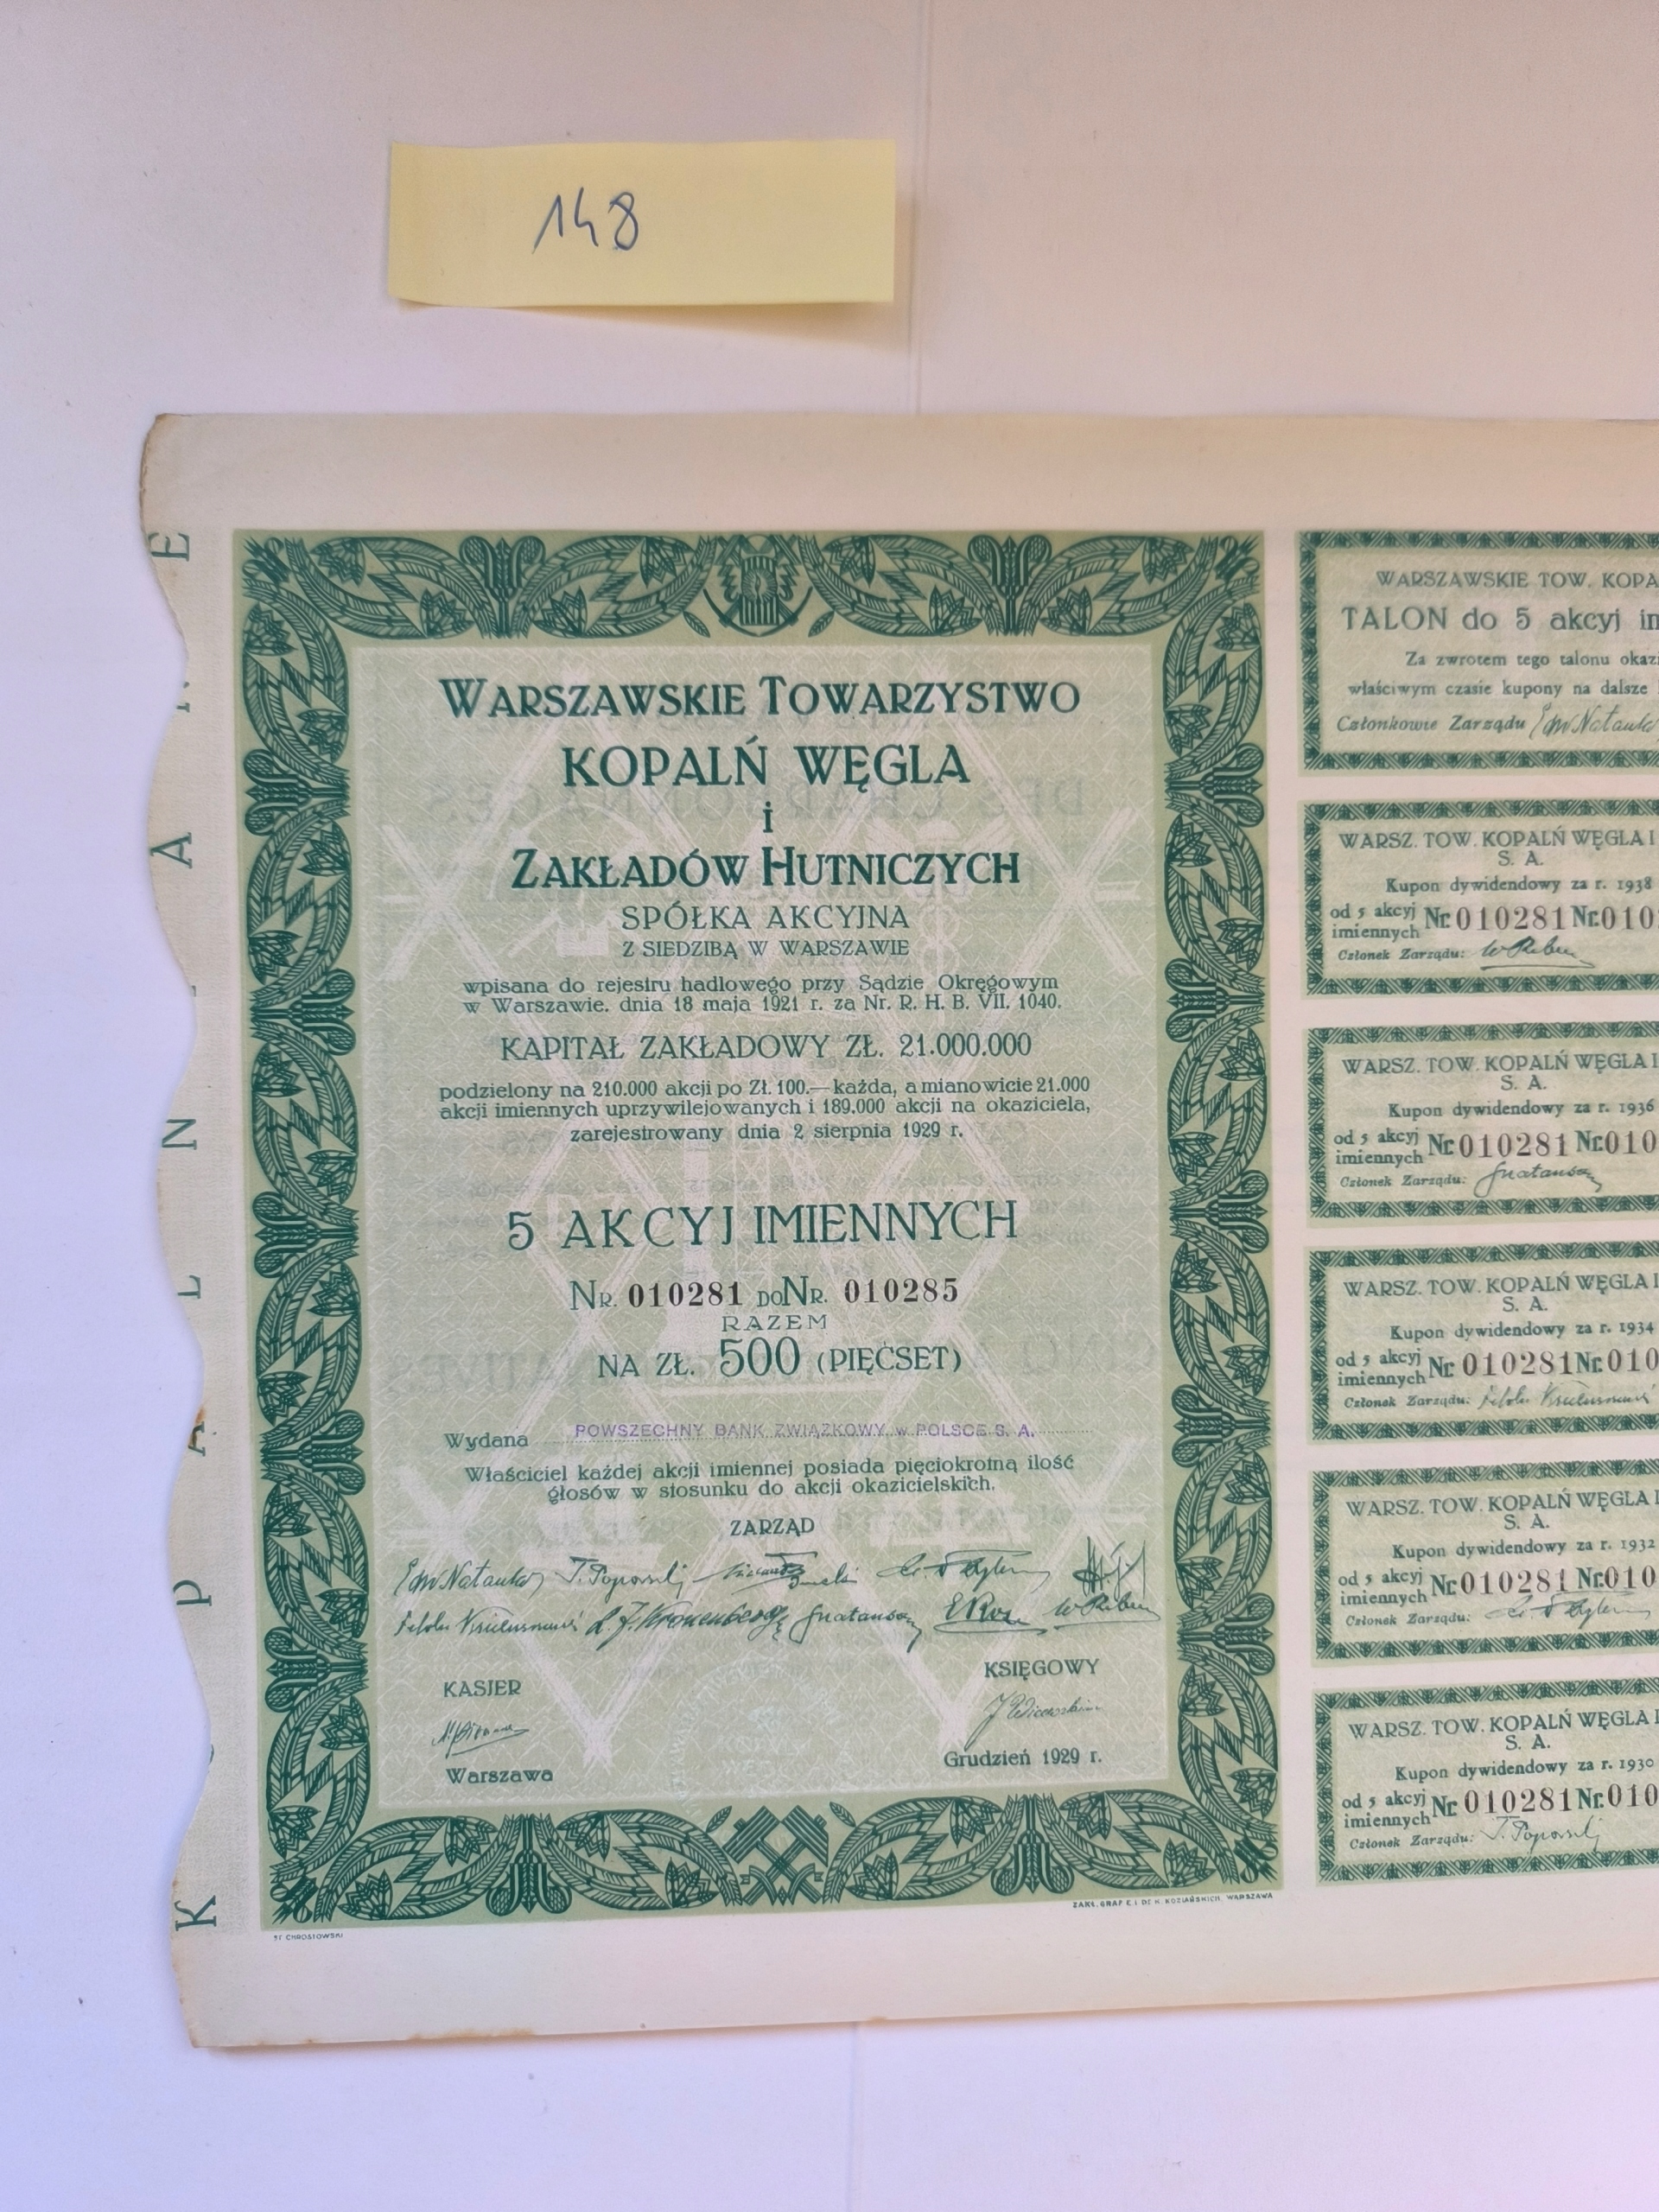 148
WARSZAWSKIE TOWARZYSTWO
KOPALŃ WĘGLA
i
ZAKŁADÓW HUTNICZYCH
SPÓŁKA AKCYJNA
Z SIEDZIBĄ W WARSZAWIE
wpisana do rejestru hadlowego przy Sądzie Okręgowym
w Warszawie, dnia 18 maja 1921 r. za Nr. R. H. B. VII. 1040.
KAPITAŁ ZAKŁADOWY ZŁ. 21.000.000
podzielony na 210.000 akcji po Zł. 100.— każda, a mianowicie 21.000
akcji imiennych uprzywilejowanych i 189.000 akcji na okaziciela,
zarejestrowany dnia 2 sierpnia 1929 r.
5 AKCYJ IMIENNYCH
NR. 010281 DO NR. 010285
RAZEM
NA ZŁ. 500 (PIĘĆSET)
Wydana POWSZECHNY BANK ZWIĄZKOWY w POLSCE S. A.
Właściciel każdej akcji imiennej posiada pięciokrotną ilość
głosów w stosunku do akcji okazicielskich.
ZARZĄD
KASJER
KSIĘGOWY
Warszawa
Grudzień 1929 r.
ST CHROSTOWSKI
ZAKŁ. GRAF E. i DR K. KOZIAŃSKICH, WARSZAWA
WARSZAWSKIE TOW. KOPA
TALON do 5 akcyj im
Za zwrotem tego talonu okazi
właściwym czasie kupony na dalsze
Członkowie Zarządu
WARSZ. TOW. KOPALŃ WĘGLA I
S. A.
Kupon dywidendowy za r. 1938
od 5 akcyj imiennych Nr. 010281 Nr. 010
Członek Zarządu:
WARSZ. TOW. KOPALŃ WĘGLA I
S. A.
Kupon dywidendowy za r. 1936
od 5 akcyj imiennych Nr. 010281 Nr. 010
Członek Zarządu:
WARSZ. TOW. KOPALŃ WĘGLA I
S. A.
Kupon dywidendowy za r. 1934
od 5 akcyj imiennych Nr. 010281 Nr. 010
Członek Zarządu:
WARSZ. TOW. KOPALŃ WĘGLA I
S. A.
Kupon dywidendowy za r. 1932
od 5 akcyj imiennych Nr. 010281 Nr. 010
Członek Zarządu:
WARSZ. TOW. KOPALŃ WĘGLA I
S. A.
Kupon dywidendowy za r. 1930
od 5 akcyj imiennych Nr. 010281 Nr. 010
Członek Zarządu: